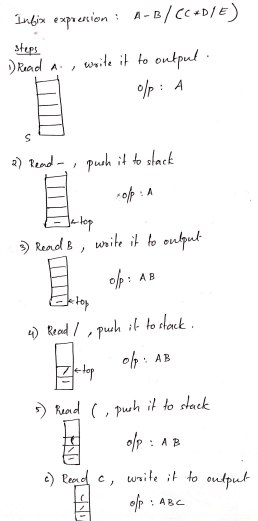 Infix expression : A-B/(C*D/E)
Steps
1) Read A. , write it to output.
o/p : A
S
2) Read - , push it to stack
o/p : A
- ←top
3) Read B , write it to output
o/p : AB
- ←top
4) Read / , push it to stack.
o/p : AB
/ ←top
-
5) Read ( , push it to stack
o/p : AB
(
/
-
6) Read C , write it to output
o/p : ABC
(
/
-